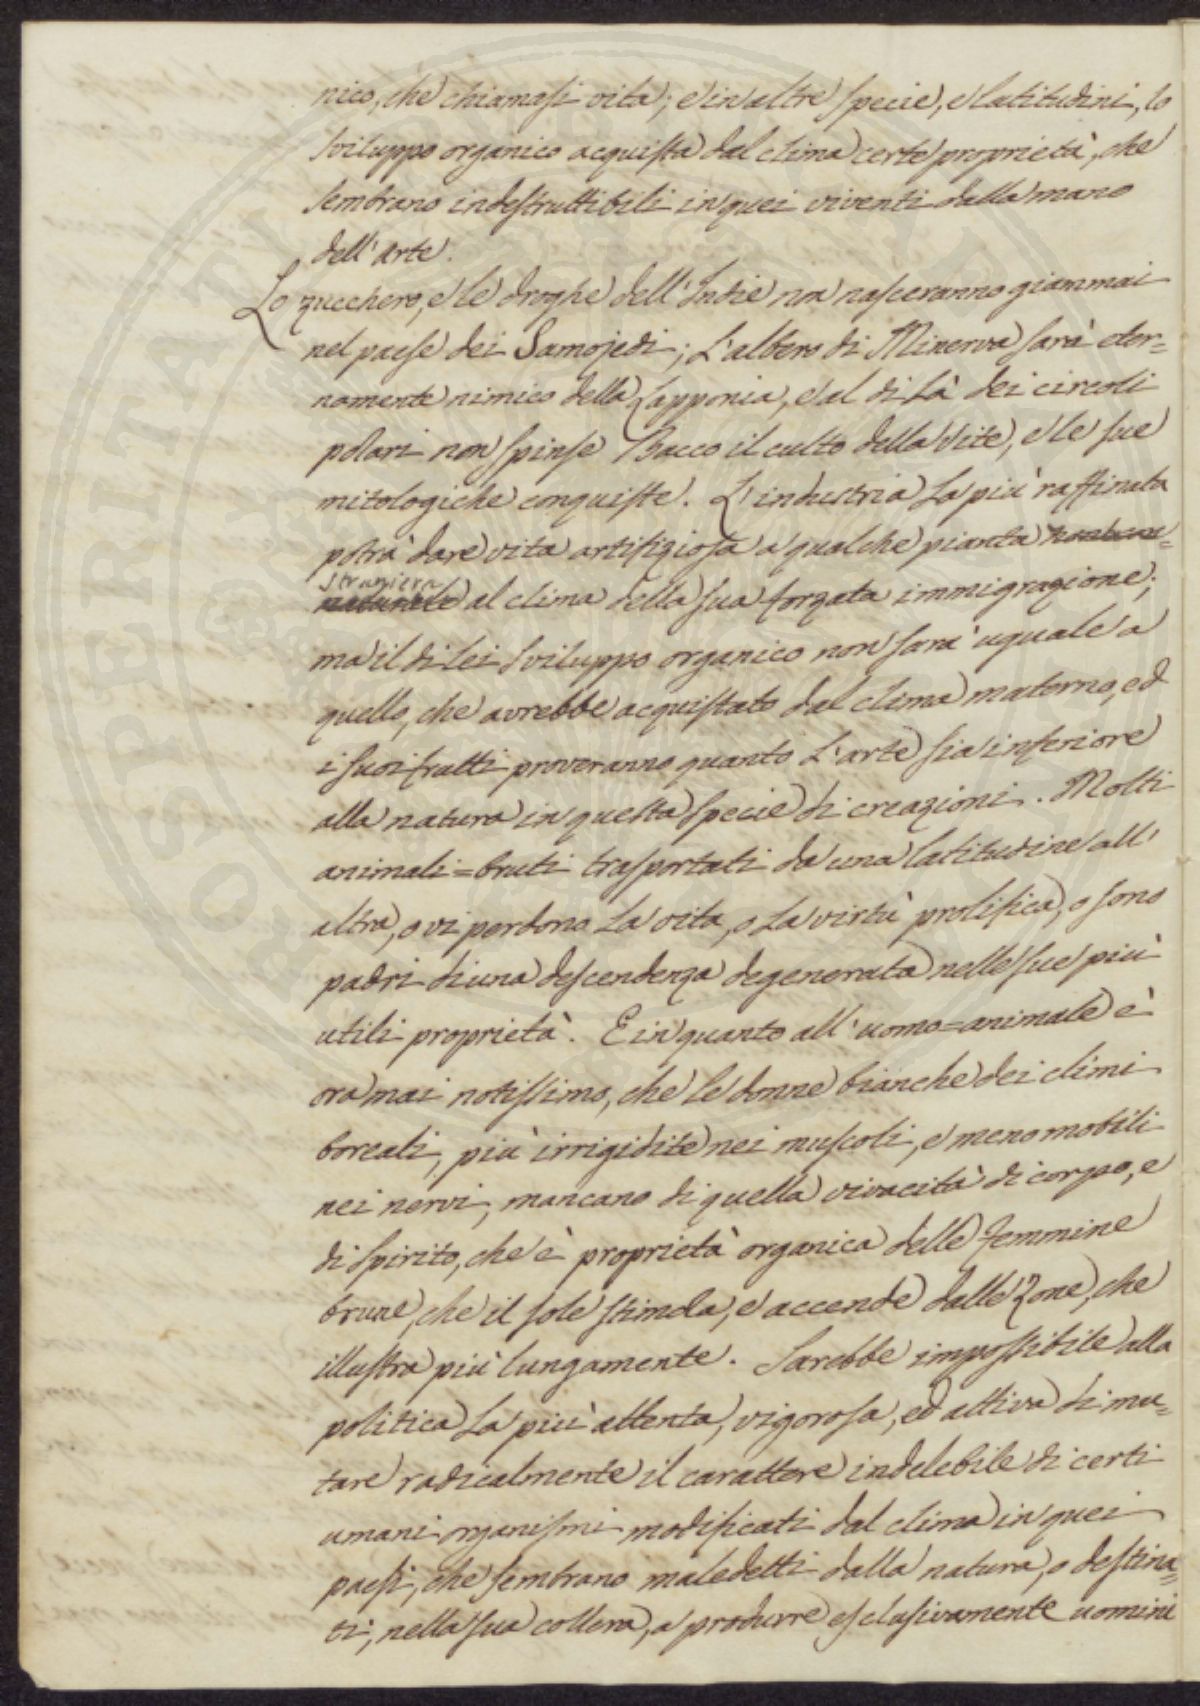 nico, che chiamasi vita; e in altre specie, e latitudini, lo
sviluppo organico acquista dal clima certe proprietà, che
sembrano indestruttibili in quei viventi dalla mano
dell'arte.
Lo zucchero, e le droghe dell'Indie non nasceranno giammai
nel paese dei Samojedi; L'albero di Minerva sarà eter=
namente nimico della Lapponia, e al di là dei circoli
polari non spinse Bacco il culto della Vite, e le sue
mitologiche conquiste. L'industria la più raffinata
potrà dare vita artifiziosa a qualche pianta
straniera
al clima della sua forzata immigrazione;
ma il di lei sviluppo organico non sarà uguale a
quello, che avrebbe acquistato dal clima materno, ed
i suoi frutti proveranno quanto L'arte sia inferiore
alla natura in questa specie di creazioni. Molti
animali=bruti trasportati da una latitudine all'
altra, o vi perdono la vita, o la virtù prolifica, o sono
padri di una descendenza degenerata nelle sue più
utili proprietà. E in quanto all'uomo=animale è
oramai notissimo, che le donne bianche dei climi
boreali, più irrigidite nei muscoli, e meno mobili
nei nervi, mancano di quella vivacità di corpo, e
di spirito, che è proprietà organica delle femmine
brune, che il sole stimola, e accende dalle Zone, che
illustra più lungamente. Sarebbe impossibile alla
politica la più attenta, vigorosa, ed attiva di mu=
tare radicalmente il carattere indelebile di certi
umani organismi modificati dal clima in quei
paesi, che sembrano maledetti dalla natura, o destina=
ti, nella sua collera, a produrre esclusivamente uomini